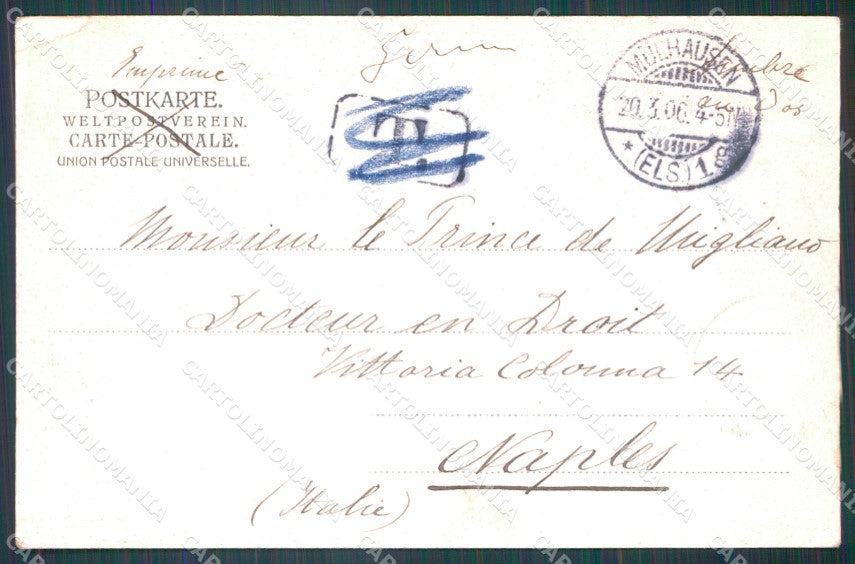 Imprimé
POSTKARTE.
WELTPOSTVEREIN.
CARTE-POSTALE.
UNION POSTALE UNIVERSELLE.
T.
MÜLHAUSEN
20.3.06. 4-5N
* (ELS.) 1g
timbre
au dos
Monsieur le Prince de Migliano
Docteur en Droit
Vittoria Colonna 14
Naples
(Italie)
CARTOLINOMANIA